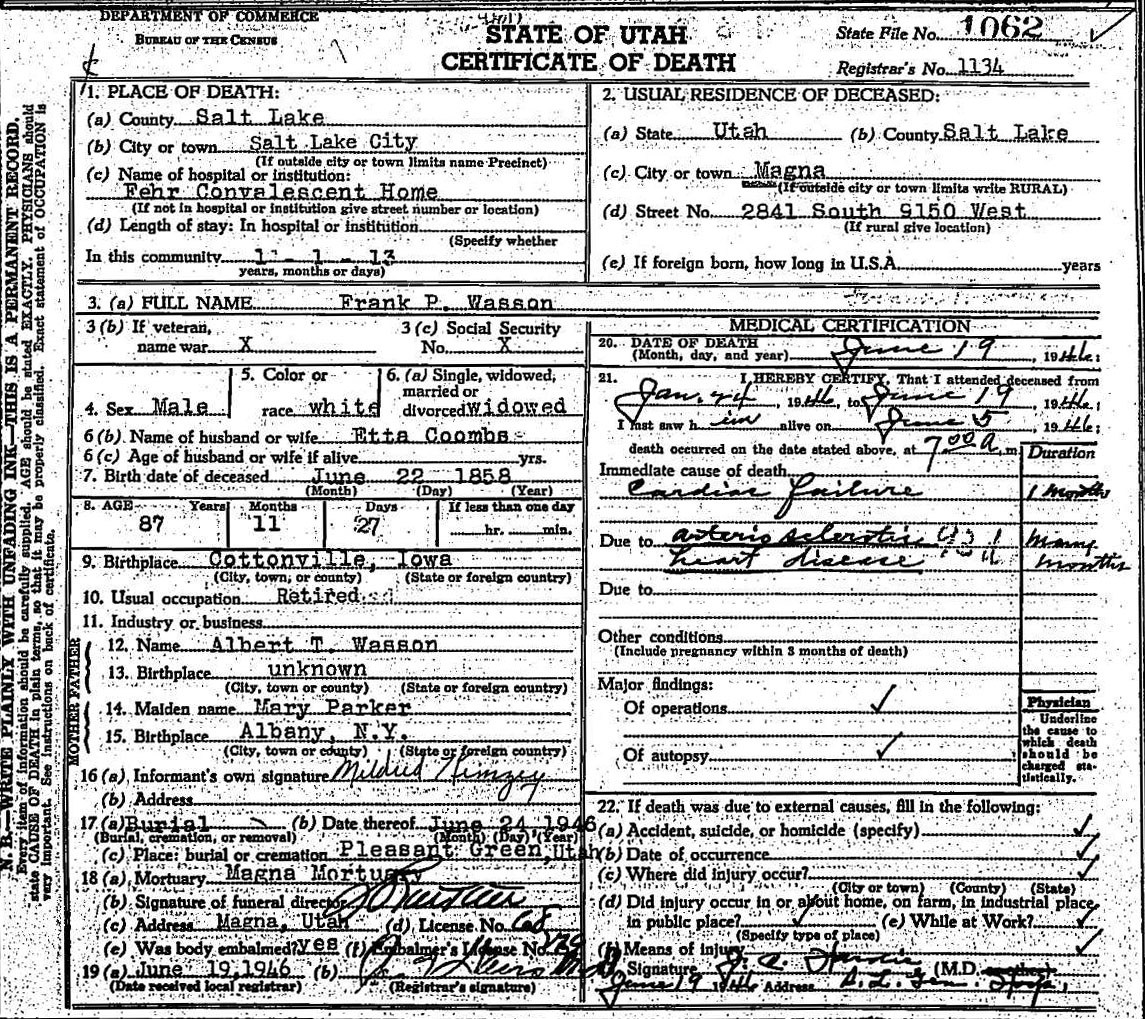 DEPARTMENT OF COMMERCE
BUREAU OF THE CENSUS
STATE OF UTAH
CERTIFICATE OF DEATH
State File No. 1062
Registrar's No. 1134
N. B.—WRITE PLAINLY WITH UNFADING INK—THIS IS A PERMANENT RECORD.
Every item of information should be carefully supplied. AGE should be stated EXACTLY. PHYSICIANS should
state CAUSE OF DEATH in plain terms, so that it may be properly classified. Exact statement of OCCUPATION is
very important. See instructions on back of certificate.
1. PLACE OF DEATH:
(a) County Salt Lake
(b) City or town Salt Lake City
(If outside city or town limits name Precinct)
(c) Name of hospital or institution:
Fehr Convalescent Home
(If not in hospital or institution give street number or location)
(d) Length of stay: In hospital or institution
(Specify whether
In this community 1 - 1 - 13
years, months or days)
2. USUAL RESIDENCE OF DECEASED:
(a) State Utah (b) County Salt Lake
(c) City or town Magna
(If outside city or town limits write RURAL)
(d) Street No. 2841 South 9150 West
(If rural give location)
(e) If foreign born, how long in U.S.A. years
3. (a) FULL NAME Frank P. Wasson
3 (b) If veteran, name war X
3 (c) Social Security No. X
4. Sex Male
5. Color or race white
6. (a) Single, widowed, married or divorced widowed
6 (b) Name of husband or wife Etta Coombs
6 (c) Age of husband or wife if alive yrs.
7. Birth date of deceased June 22 1858
(Month) (Day) (Year)
8. AGE Years Months Days If less than one day
87 11 27 hr. min.
9. Birthplace Cottonville, Iowa
(City, town, or county) (State or foreign country)
10. Usual occupation Retired
11. Industry or business
FATHER
12. Name Albert T. Wasson
13. Birthplace unknown
(City, town or county) (State or foreign country)
MOTHER
14. Maiden name Mary Parker
15. Birthplace Albany, N.Y.
(City, town or county) (State or foreign country)
16 (a) Informant's own signature Mildred
(b) Address
17 (a) Burial (b) Date thereof June 24 1946
(Burial, cremation, or removal) (Month) (Day) (Year)
(c) Place: burial or cremation Pleasant Green, Utah
18 (a) Mortuary Magna Mortuary
(b) Signature of funeral director
(c) Address Magna, Utah (d) License No. 68
(e) Was body embalmed? yes (f) Embalmer's License No.
19 (a) June 19, 1946 (b)
(Date received local registrar) (Registrar's signature)
MEDICAL CERTIFICATION
20. DATE OF DEATH
(Month, day, and year) June 19, 1946;
21. I HEREBY CERTIFY, That I attended deceased from
Jan. 24 1946, to June 19, 1946;
I last saw him alive on June 5, 1946;
death occurred on the date stated above, at 7:00 a. m.
Duration
Immediate cause of death
Cardiac failure 1 months
Due to arterio sclerotic many
heart disease months
Due to
Other conditions
(Include pregnancy within 3 months of death)
Major findings:
Of operations ✓
Of autopsy ✓
Physician
Underline
the cause to
which death
should be
charged sta-
tistically.
22. If death was due to external causes, fill in the following:
(a) Accident, suicide, or homicide (specify) ✓
(b) Date of occurrence ✓
(c) Where did injury occur? ✓
(City or town) (County) (State)
(d) Did injury occur in or about home, on farm, in industrial place,
in public place? ✓ (e) While at Work? ✓
(Specify type of place)
(f) Means of injury ✓
Signature J. A. (M.D.
June 19 1946 Address S. L. Gen. Hosp.